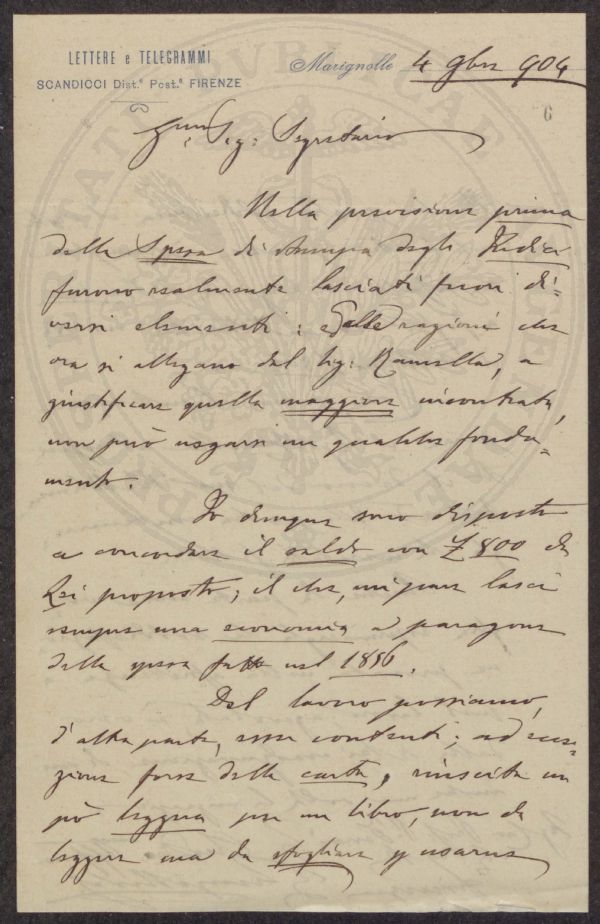 LETTERE e TELEGRAMMI
SCANDICCI Dist.ª Post.ª FIRENZE
Marignolle 4 9bre 904
6
Sig: Segretario
Nella previsione prima
della spesa di stampa degli Indici
furono realmente lasciati fuori di=
versi elementi: e dalle ragioni che
ora si allegano dal Sig: Ramella, a
giustificare quella maggiore incontrata,
non può negarsi un qualche fonda=
mento.
Io dunque sono disposto
a concordare il saldo con £ 800 da
Lei proposto; il che, mi pare lasci
sempre una economia a paragone
della spesa fatta nel 1886.
Del lavoro possiamo,
d'altra parte, esser contenti; ad ecce=
zione forse della carta, riuscita un
pò leggera per un libro, non da
leggere ma da sfogliare e usarne